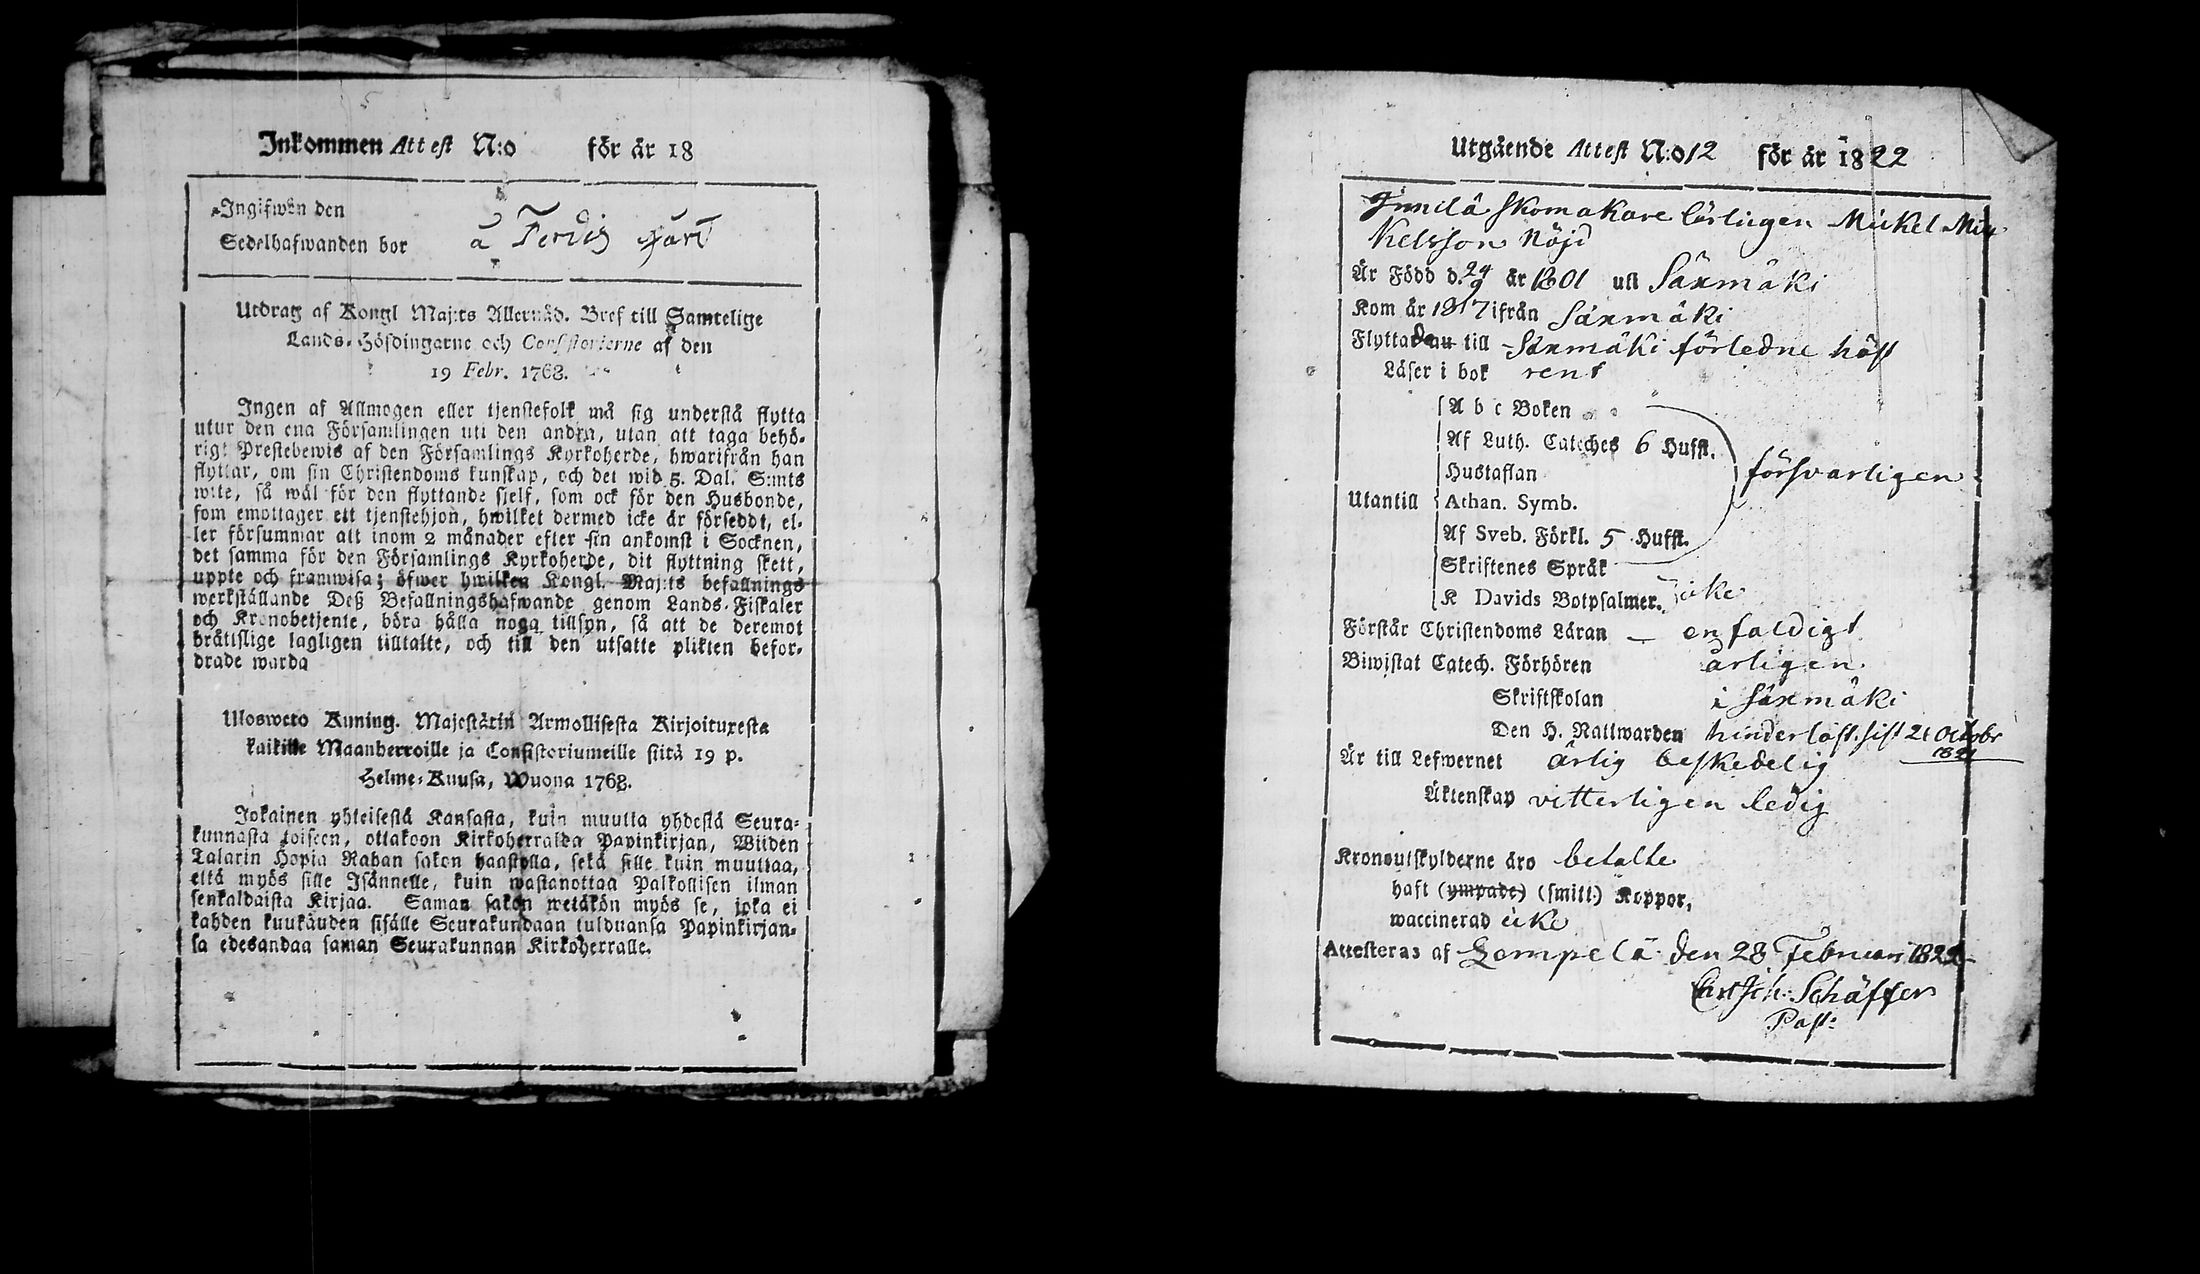 Inkommen Attest N:o för år 18
Ingifwen den
Sedelhafwanden bor å
Utdrag af Kongl Maj:ts Allernåd. Bref till Samtelige
Lands-Höfdingarne och Consistorierne af den
19 Febr. 1768.
Ingen af Allmogen eller tjenstefolk må sig understå flytta
utur den ena Församlingen uti den andra, utan att taga behö-
rigt Prestebewis af den Församlings Kyrkoherde, hwarifrån han
flyttar, om sin Christendoms kunskap, och det wid 5. Dal. S:mts
wite, så wäl för den flyttande sjelf, som ock för den Husbonde,
som emottager ett tjenstehjon, hwilket dermed icke är förseddt, el-
ler försummar att inom 2 månader efter sin ankomst i Socknen,
det samma för den Församlings Kyrkoherde, dit flyttning skett,
uppte och framwisa; öfwer hwilken Kongl. Maj:ts befallnings
werkställande Deß Befallningshafwande genom Lands-Fiskaler
och Kronobetjente, böra hålla noga tillsyn, så att de deremot
bråttslige lagligen tilltalte, och till den utsatte plikten befor-
drade warda
Ulosweto Kuning. Majestätin Armollisesta Kirjoituxesta
kaikille Maanherroille ja Consistoriumeille siitä 19 p.
Helme-Kuusa, Wuona 1768.
Jokainen yhteisestä Kansasta, kuin muutta yhdestä Seura-
kunnasta toiseen, ottakoon Kirkoherralda Papinkirjan, Wiiden
Talarin Hopia Rahan sakon haastolla, sekä sille kuin muuttaa,
että myös sille Isännelle, kuin wastanottaa Palkollisen ilman
senkaldaista Kirjaa. Saman sakon wetäkön myös se, joka ei
kahden kuukauden sisälle Seurakundaan tulduansa Papinkirjan-
sa edesandaa saman Seurakunnan Kirkoherralle.
Utgående Attest N:o 12 för år 1822
Skomakare lärlingen Mickel Mic
kelsson Nöjd
Är Född d. 24/9 år 1801 uti Säxmäki
Kom år 1817 ifrån Säxmäki
Flyttade till Säxmäki förledne höst
Läser i bok rent
A b c Boken
Af Luth. Cateches 6 Hufst.
Hustaflan försvarligen
Utantill Athan. Symb.
Af Sveb. Förkl. 5 Hufst.
Skriftenes Språk
K Davids Botpsalmer. icke
Förstår Christendoms Läran enfaldigt
Biwistat Catech. Förhören årligen
Skriftskolan i Säxmäki
Den H. Nattwarden hinderlöst. sist 21 Octobr
1821
Är till Lefwernet ärlig beskedelig
Äktenskap vitterligen ledig
Kronoutskylderne äro betalte
haft (ympade) (smitt.) Koppor,
waccinerad icke
Attesteras af Lempelä den 28 Februari 1822
Schäffer
Past: